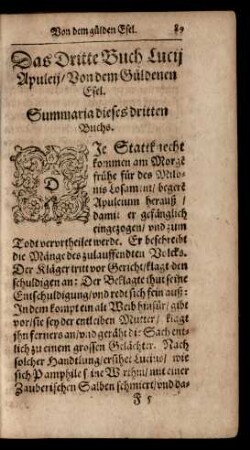 Von dem gülden Esel. 89
Das Dritte Buch Lucij
Apuleij / Von dem Güldenen
Esel.
Summaria dieses dritten
Buchs.
DIe Stattknecht
kommen am Morgẽ
frühe für des Milo-
nis Losament / begerẽ
Apuleium herauß /
damit er gefänglich
eingezogen / vnd zum
Todt vervrtheilet werde. Er beschreibt
die Mänge des zulauffendten Volcks.
Der Kläger tritt vor Gericht / klagt den
schuldigen an: Der Beklagte thut seine
Entschuldigung / vnd redt sich fein auß:
Indem kompt ein alt Weib binfür / gibt
vor / sie sey der entleibten Mutter / klagt
jhn ferners an / vnd geräht die Sach ent-
lich zu einem grossen Gelächter. Nach
solcher Handlung / ersihet Lucius / wie
sich Pamphile seine Wirthin / mit einer
Zauberischen Salben schmiert / vnd da-
F 5